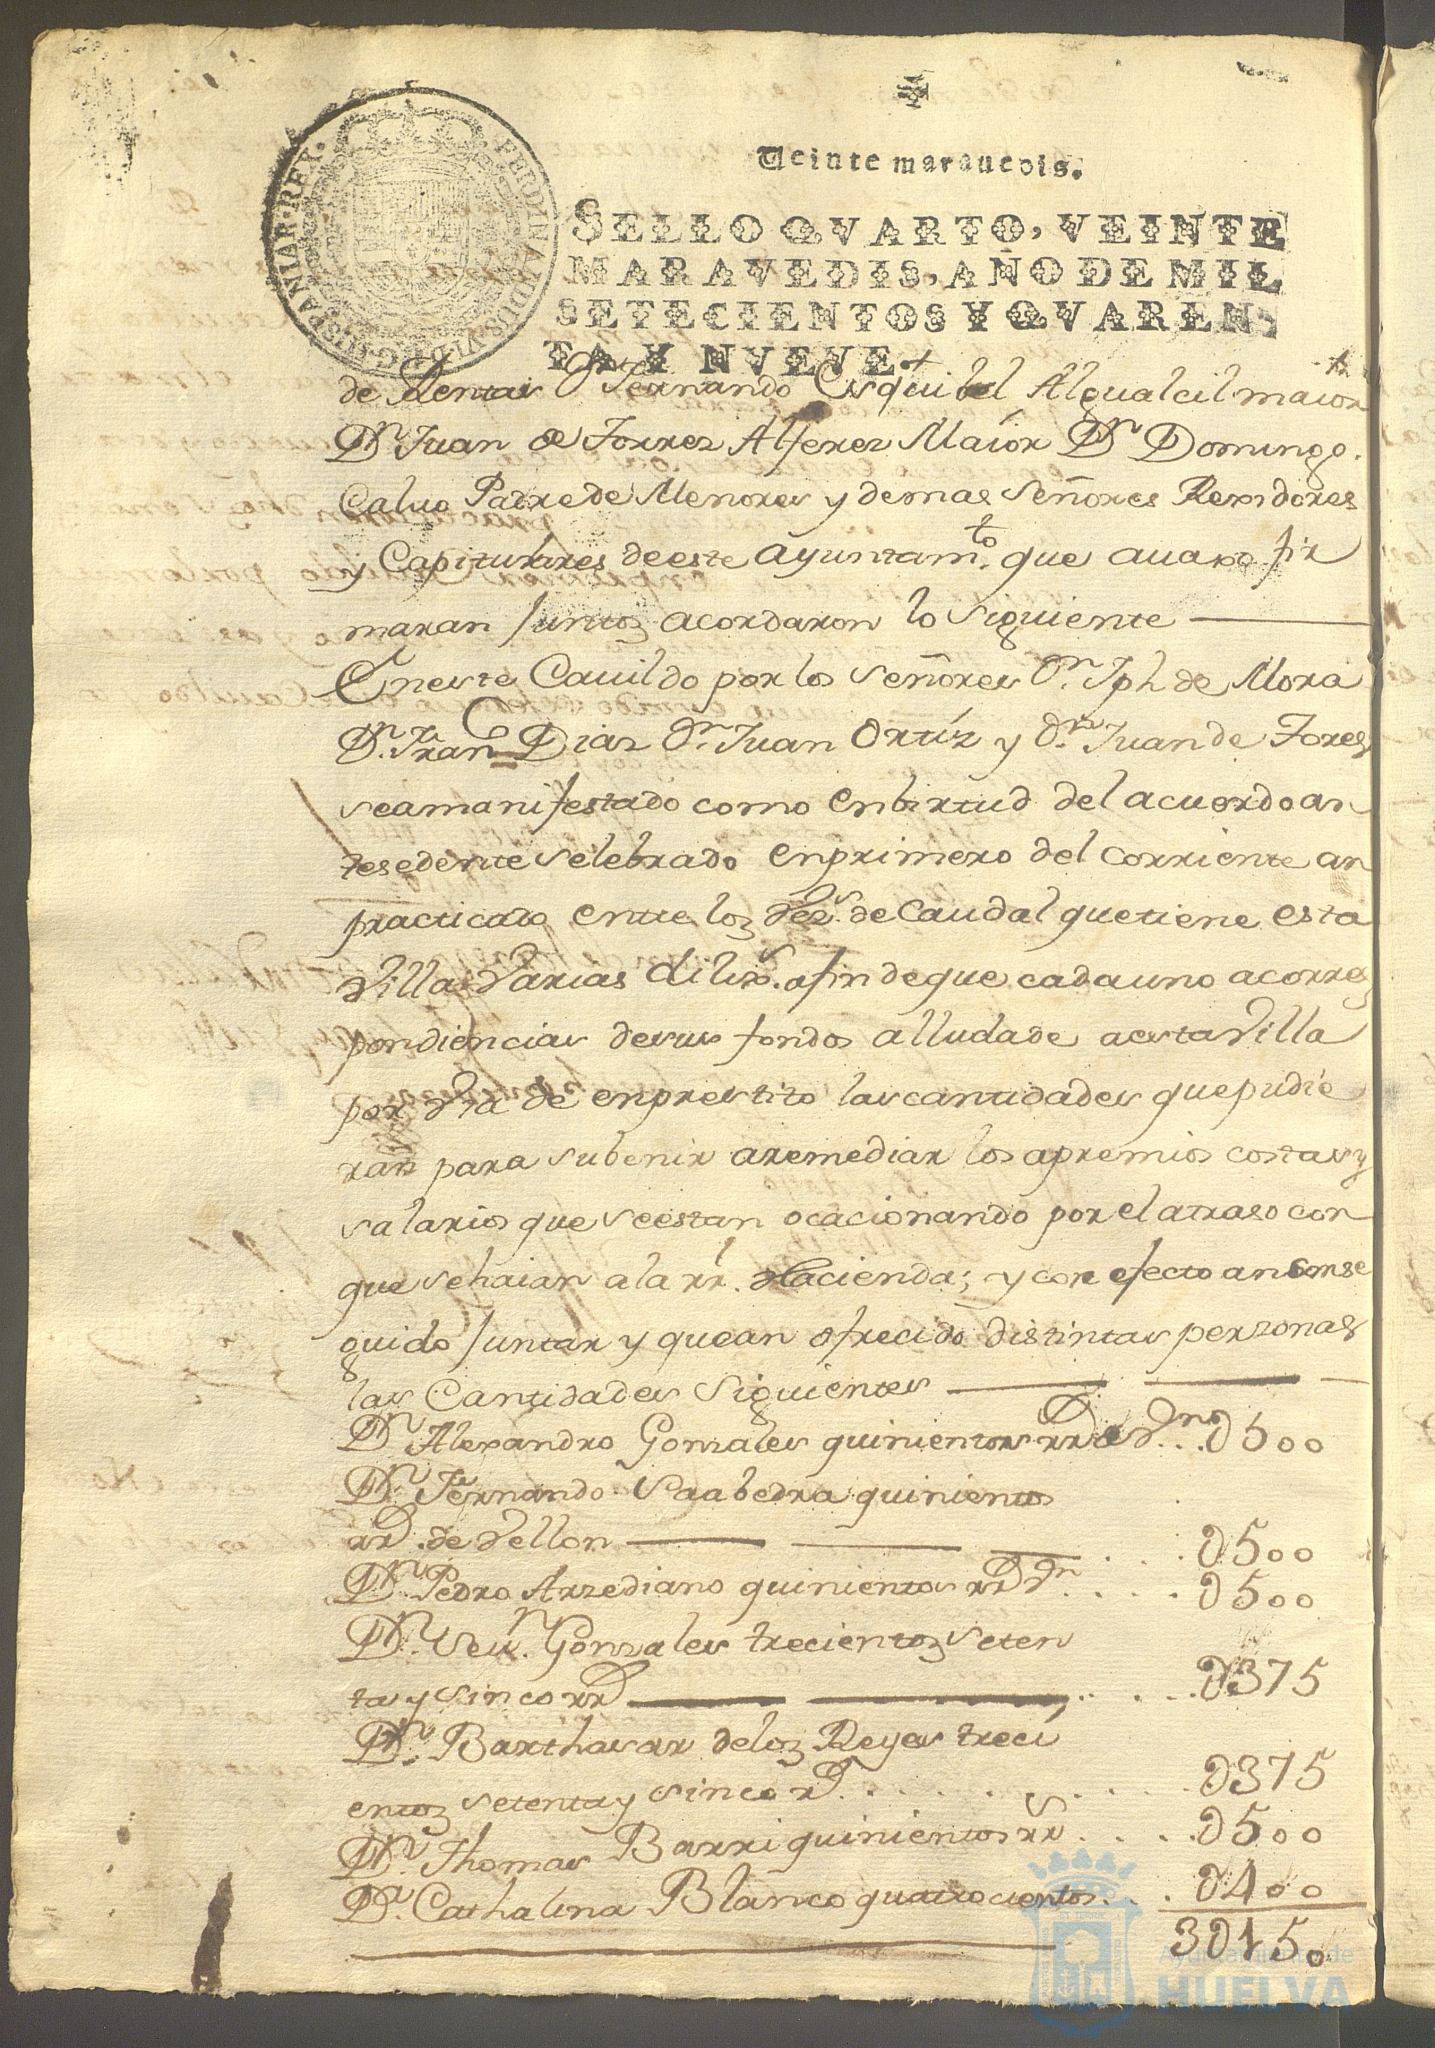 Veinte marauedis.
SELLO QVARTO, VEINTE
MARAVEDIS, AÑO DE MIL
SETECIENTOS Y QVAREN
TA Y NVEVE.
FERDINANDUS VI D G HISPANIAR REX
de Rentas Dn Fernando Esquibel Alguacil maior
Dn Juan de Torres Alferez Maior Dn Domingo
Caluo Padre de Menores y demas Señores Rexidores
y Capitulares de este ayuntamto. que auaxo fir
maran Juntoz acordaron lo Siguiente
En este Cauildo por los Señores Dn. Jph de Mora
Dn. Franco Dias Dn. Juan Ortiz y Dn. Juan de Tores
se a manifestado como en birtud del acuerdo an
tesedente selebrado en primero del corriente an
practicado entre loz Vezs. de Caudal que tiene esta
Villa Varias dilixs. a fin de que cada uno a corres
pondiencias de sus fondos alludade a esta Villa
por Via de enprestito las cantidades que pudie
ran para subenir a remediar los apremios costas y
salarios que se estan ocacionando por el atraso con
que se haian a la rl. Hacienda; y con efecto an conse
guido Juntar y que an ofrecido distintas perzonas
las Cantidades Siguientes
Dn Alexandro Gonzales quinientos rrs de Vn. . . D500
Dn Fernando Saabedra quinientos
rrs. de Vellon . . . D500
Dn. Pedro Arzediano quinientos rrs Vn . . . . D500
Dn. Seun. Gonzales trecientoz seten
ta y sinco rrs . . . . D375
Dn. Barthasar de loz Reyes treci
entoz setenta y sinco rs . . . . D375
Dn. Thomas Barri quinientos rrs . . . . D500
Da. Cathalina Blanco quatrocientos . . . D400
3D150
Ayuntamiento de
HUELVA